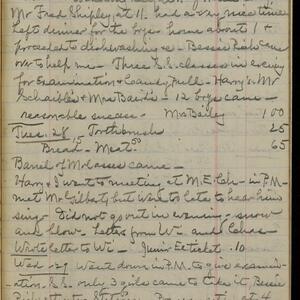 Mr Fred Shipley at 11. had a very nice time
left dinner for the boys home about 1 &
proceeded to dishwashing &c - Bessie Rich came
over to help me - Three S.S. classes in evening
for Examination & Candy Pull - Harry's Mr
Schaible's & Mrs Baird's - 12 boys came -
reasonable success - Mrs Bailey 1 00
Tues. 28, - Toothbrush 25
Bread - Meat 50 65
Barrel of Molasses came -
Harry & I went to meeting at M.E. Ch - in P.M.
met Mr Gilbert, but were to late to hear him
sing - Did not go out in evening - snow
and blow - Letter from W. and
Wrote letter to W - Junior Ec ticket .10
Wed - 29 Went down in P.M. to give examin-
ation. S.S. only 3 girls came to take it. Bessie
at 4